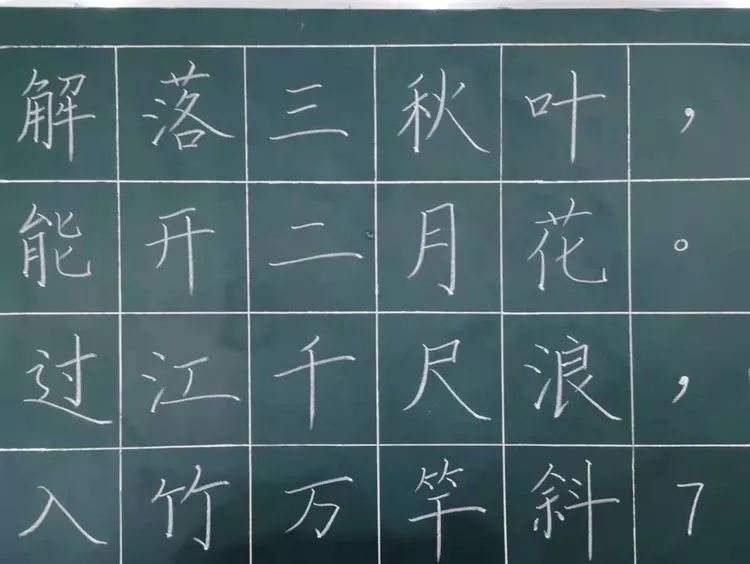 解落三秋叶，
能开二月花。
过江千尺浪，
入竹万竿斜7